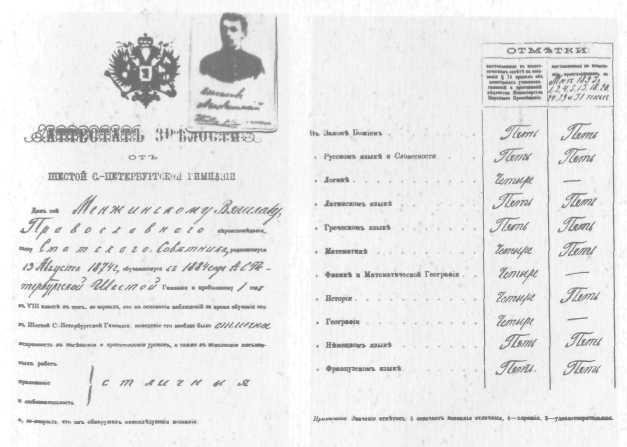 АТТЕСТАТЪ ЗРѢЛОСТИ
ОТЪ
ШЕСТОЙ С.-ПЕТЕРБУРГСКОЙ ГИМНАЗІИ
Данъ сей Менжинскому Вячеславу,
Православного вѣроисповѣданія,
сыну Статского Совѣтника, родившемуся
19 Августа 1874 г., обучавшемуся съ 1884 года въ С.Пе-
тербургской Шестой Гимназіи и пробывшему 1 годъ
въ VIII классѣ въ томъ, во первыхъ, что на основаніи наблюденій за время обученія его
въ Шестой С.-Петербургской Гимназіи, поведеніе его вообще было отличное
исправность въ посѣщеніи и приготовленіи уроковъ, а также въ исполненіи письмен-
ныхъ работъ
прилежаніе отличныя
и любознательность
и, во-вторыхъ, что онъ обнаружилъ нижеслѣдующія познанія:
ОТМѢТКИ:
Мая 1893 г.
Въ Законѣ Божіемъ Пять Пять
» Русскомъ языкѣ и Словесности Пять Пять
» Логикѣ Четыре —
» Латинскомъ языкѣ Пять Пять
» Греческомъ языкѣ Пять Пять
» Математикѣ Четыре Пять
» Физикѣ и Математической Географіи Четыре —
» Исторіи Четыре Пять
» Географіи Четыре —
» Нѣмецкомъ языкѣ Пять Пять
» Французскомъ языкѣ Пять Пять
Примѣчаніе. Значеніе отмѣтокъ: 5 означаетъ познанія отличныя, 4—хорошія, 3—удовлетворительныя.